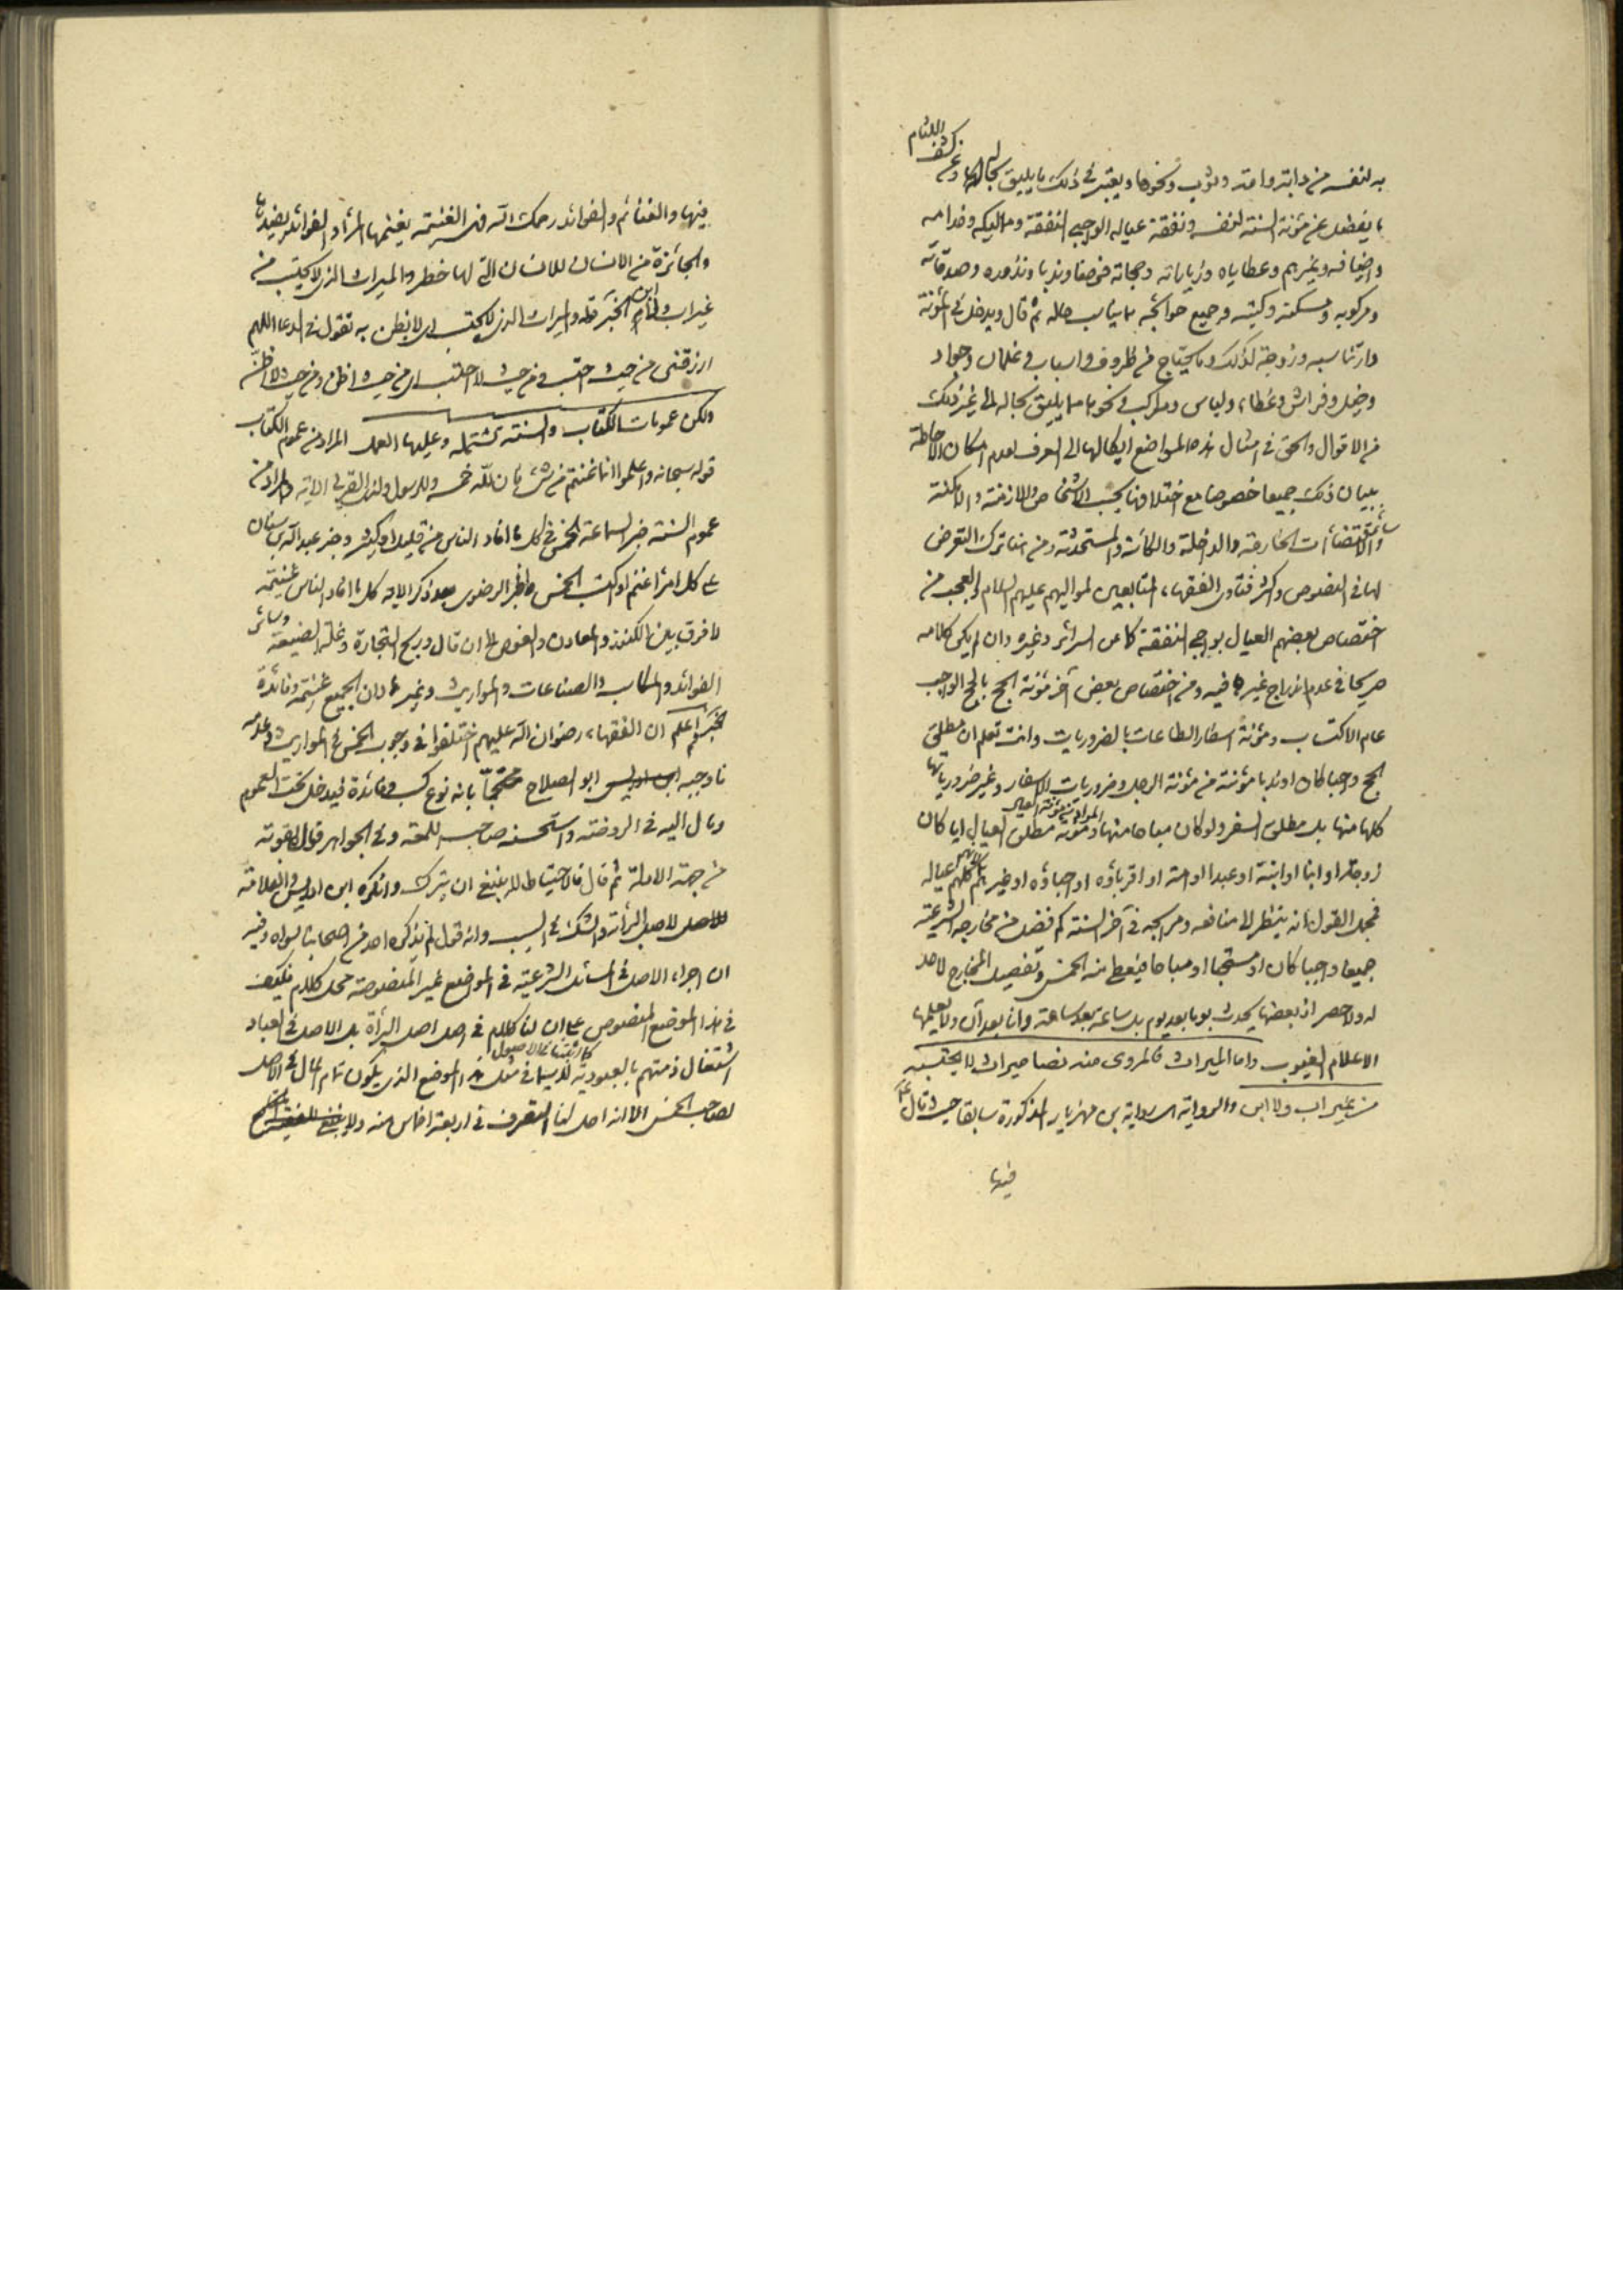 به لنفسه من دابة وامة وثوب ونحوها ويعتبر في ذلك ما يليق بحاله وعن كشف اللثام
ما يفضل عن مؤنة السنة لنفسه ونفقة عياله الواجبي النفقة ومماليكه وخدامه
واضيافه وغيرهم وعطاياه وزياراته وحجاته فرضا وندبا ونذوره وصدقاته
ومركوبه ومسكنه وكتبه وجميع حوائجه بما يناسب حاله ثم قال ويدخل في المؤنة
دار تناسبه وزوجة لذلك وما يحتاج من ظروف واسباب وغلمان وجواد
وخيل وفراش وغطاء ولباس ومراكب ونحوها مما يليق بحاله الى غير ذلك
من الاقوال والحق في امثال هذه المواضع ايكالها الى العرف لعدم امكان الاحاطة
ببيان ذلك جميعا خصوصا مع اختلافها بحسب الاشخاص والازمنة والامكنة
وسائر الاقتضاآت الخارجة والداخلة والكائنة والمستحدثة ومن هنا ترك التعرض
لها في النصوص واكثر فتاوى الفقهاء التابعين لمواليهم عليهم السلام والعجب من
اختصاص بعضهم العيال بواجبي النفقة كما عن السرائر وغيره وان لم يكن كلامه
صريحا في عدم اندراج غيره فيه ومن اختصاص بعض آخر مؤنة الحج بالحج الواجب
عام الاكتساب ومؤنة اسفار الطاعات بالضروريات وانت تعلم ان مطلق
الحج واجبا كان او ندبا مؤنته من مؤنة الرجل وضروريات الاسفار وغير ضرورياتها
كلها منها بل مطلق السفر ولو كان مباحا منها ومؤنة مطلق العيال ايا كان
زوجة او ابنا او ابنة او عبدا او امة او اقرباؤه او احباؤه او غيرهم عياله
فمجمل القول انه ينظر الى منافعه ومرابحه في آخر السنة كم فضل من مخارجه الشرعية
جميعا واجبا كان او مستحبا او مباحا فيعطي منه الخمس وتفصيل المخارج لا حد
له ولا حصر اذ بعضها يحدث يوما بعد يوم بل ساعة بعد ساعة وآنا بعد آن ولا يعلمها
الا علام الغيوب واما الميراث فالمروى منه نصا ميراث لا يحتسب
من غير اب ولا ابن والرواية رواية بن مهزيار المذكورة سابقا حيث قال
فيها
فيها والغنائم والفوائد رحمك الله فهي الغنيمة يغنمها المرأ والفوائد يفيدها
والجائزة من الانسان للانسان التي لها خطر والميراث الذي لا يحتسب من
غير اب ولا ابن الخبر قوله والميراث الذي لا يحتسب اي لا يظن به تقول في الدعا اللهم
ارزقني من حيث احتسب ومن حيث لا احتسب اي من حيث اظن ومن حيث لا اظن
ولكن عمومات الكتاب والسنة تشتمله وعليها العمل المراد من عموم الكتاب
قوله سبحانه واعلموا انما غنمتم من شئ فان لله خمسه وللرسول ولذي القربى الاية والمراد من
عموم السنة خبر سماعة الخمس في كل ما افاد الناس من قليل او كثير وخبر عبد الله بن سنان
على كل امرأ غنم او اكتسب الخمس والخبر الرضوى بعد ذكر الاية كل ما افاد الناس غنيمة
لا فرق بين الكنوز والمعادن والغوص الى ان قال وربح التجارة وغلة الضيعة وسائر
الفوائد والمكاسب والصناعات والمواريث وغيرها لان الجميع غنيمة وفائدة
الخبر ثم اعلم ان الفقهاء رضوان الله عليهم اختلفوا في وجوب الخمس في المواريث وعدمه
فاوجبه ابو الصلاح محتجا بانه نوع كسب وفائدة فيدخل تحت العموم
ومال اليه في الروضة واستحسنه صاحب اللمعة وفي الجواهر قال بقوته
من جهة الادلة ثم قال فالاحتياط لا ينبغي ان يترك وانكره ابن ادريس والعلامة
للاصل لاصل البرأة والشك في السبب وانه قول لم يذكره احد من اصحابنا سواه وفيه
ان اجراء الاصل في المسائل الشرعية في المواضع غير المنصوصة محل كلام فكيف
في هذا الموضع المنصوص على ان لنا كلام في اصل اصل البرأة بل الاصل في العباد
اشتغال ذمتهم بالعبودية كما اثبتنا في الاصول لا سيما في مثل الموضع الذي يكون تمام المال في الاصل
لصاحب الخمس الا انه احل لنا التصرف في اربعة اخماس منه